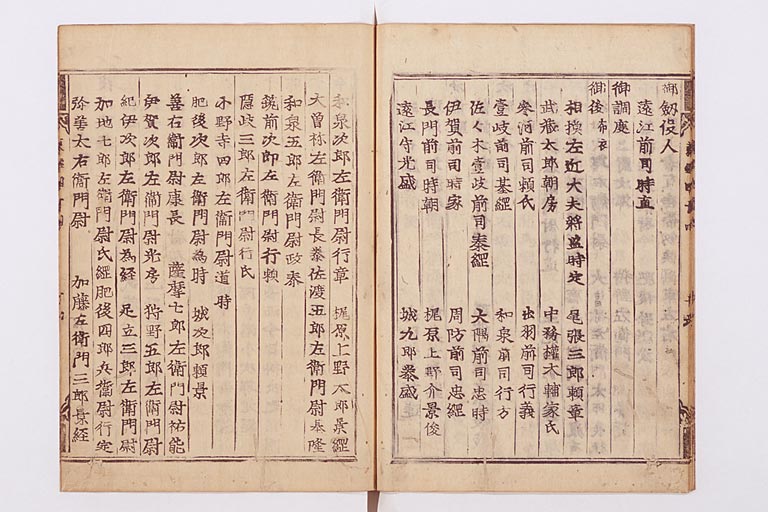 御劔役人
遠江前司時直
御調度
御後布衣
相摸左近大夫將監時定 尾張三郎頼章
武藏太郎朝房 中務權大輔家氏
参河前司頼氏 出羽前司行義
壹岐前司基經 和泉前司行方
佐々木壹岐前司泰經 大隅前司忠時
伊賀前司時家 周防前司忠經
長門前司時朝 梶原上野介景俊
遠江守光盛 城九郎泰盛
和泉次郎左衛門尉行章 梶原上野太郎景經
大曽祢左衛門尉長泰佐渡五郎左衛門尉基隆
和泉五郎左衛門尉政泰
筑前次郎左衛門尉行頼
隠岐三郎左衛門尉行氏
小野寺四郎左衛門尉道時
肥後次郎左衛門尉為時 城次郎頼景
善右衛門尉康長 薩摩七郎左衛門尉祐能
伊賀次郎左衛門尉光房 狩野五郎左衛門尉
紀伊次郎左衛門尉為經 足立三郎左衛門尉
加地七郎左衛門尉氏經肥後四郎兵衛尉行定
弥善太右衛門尉 加藤左衛門三郎景經